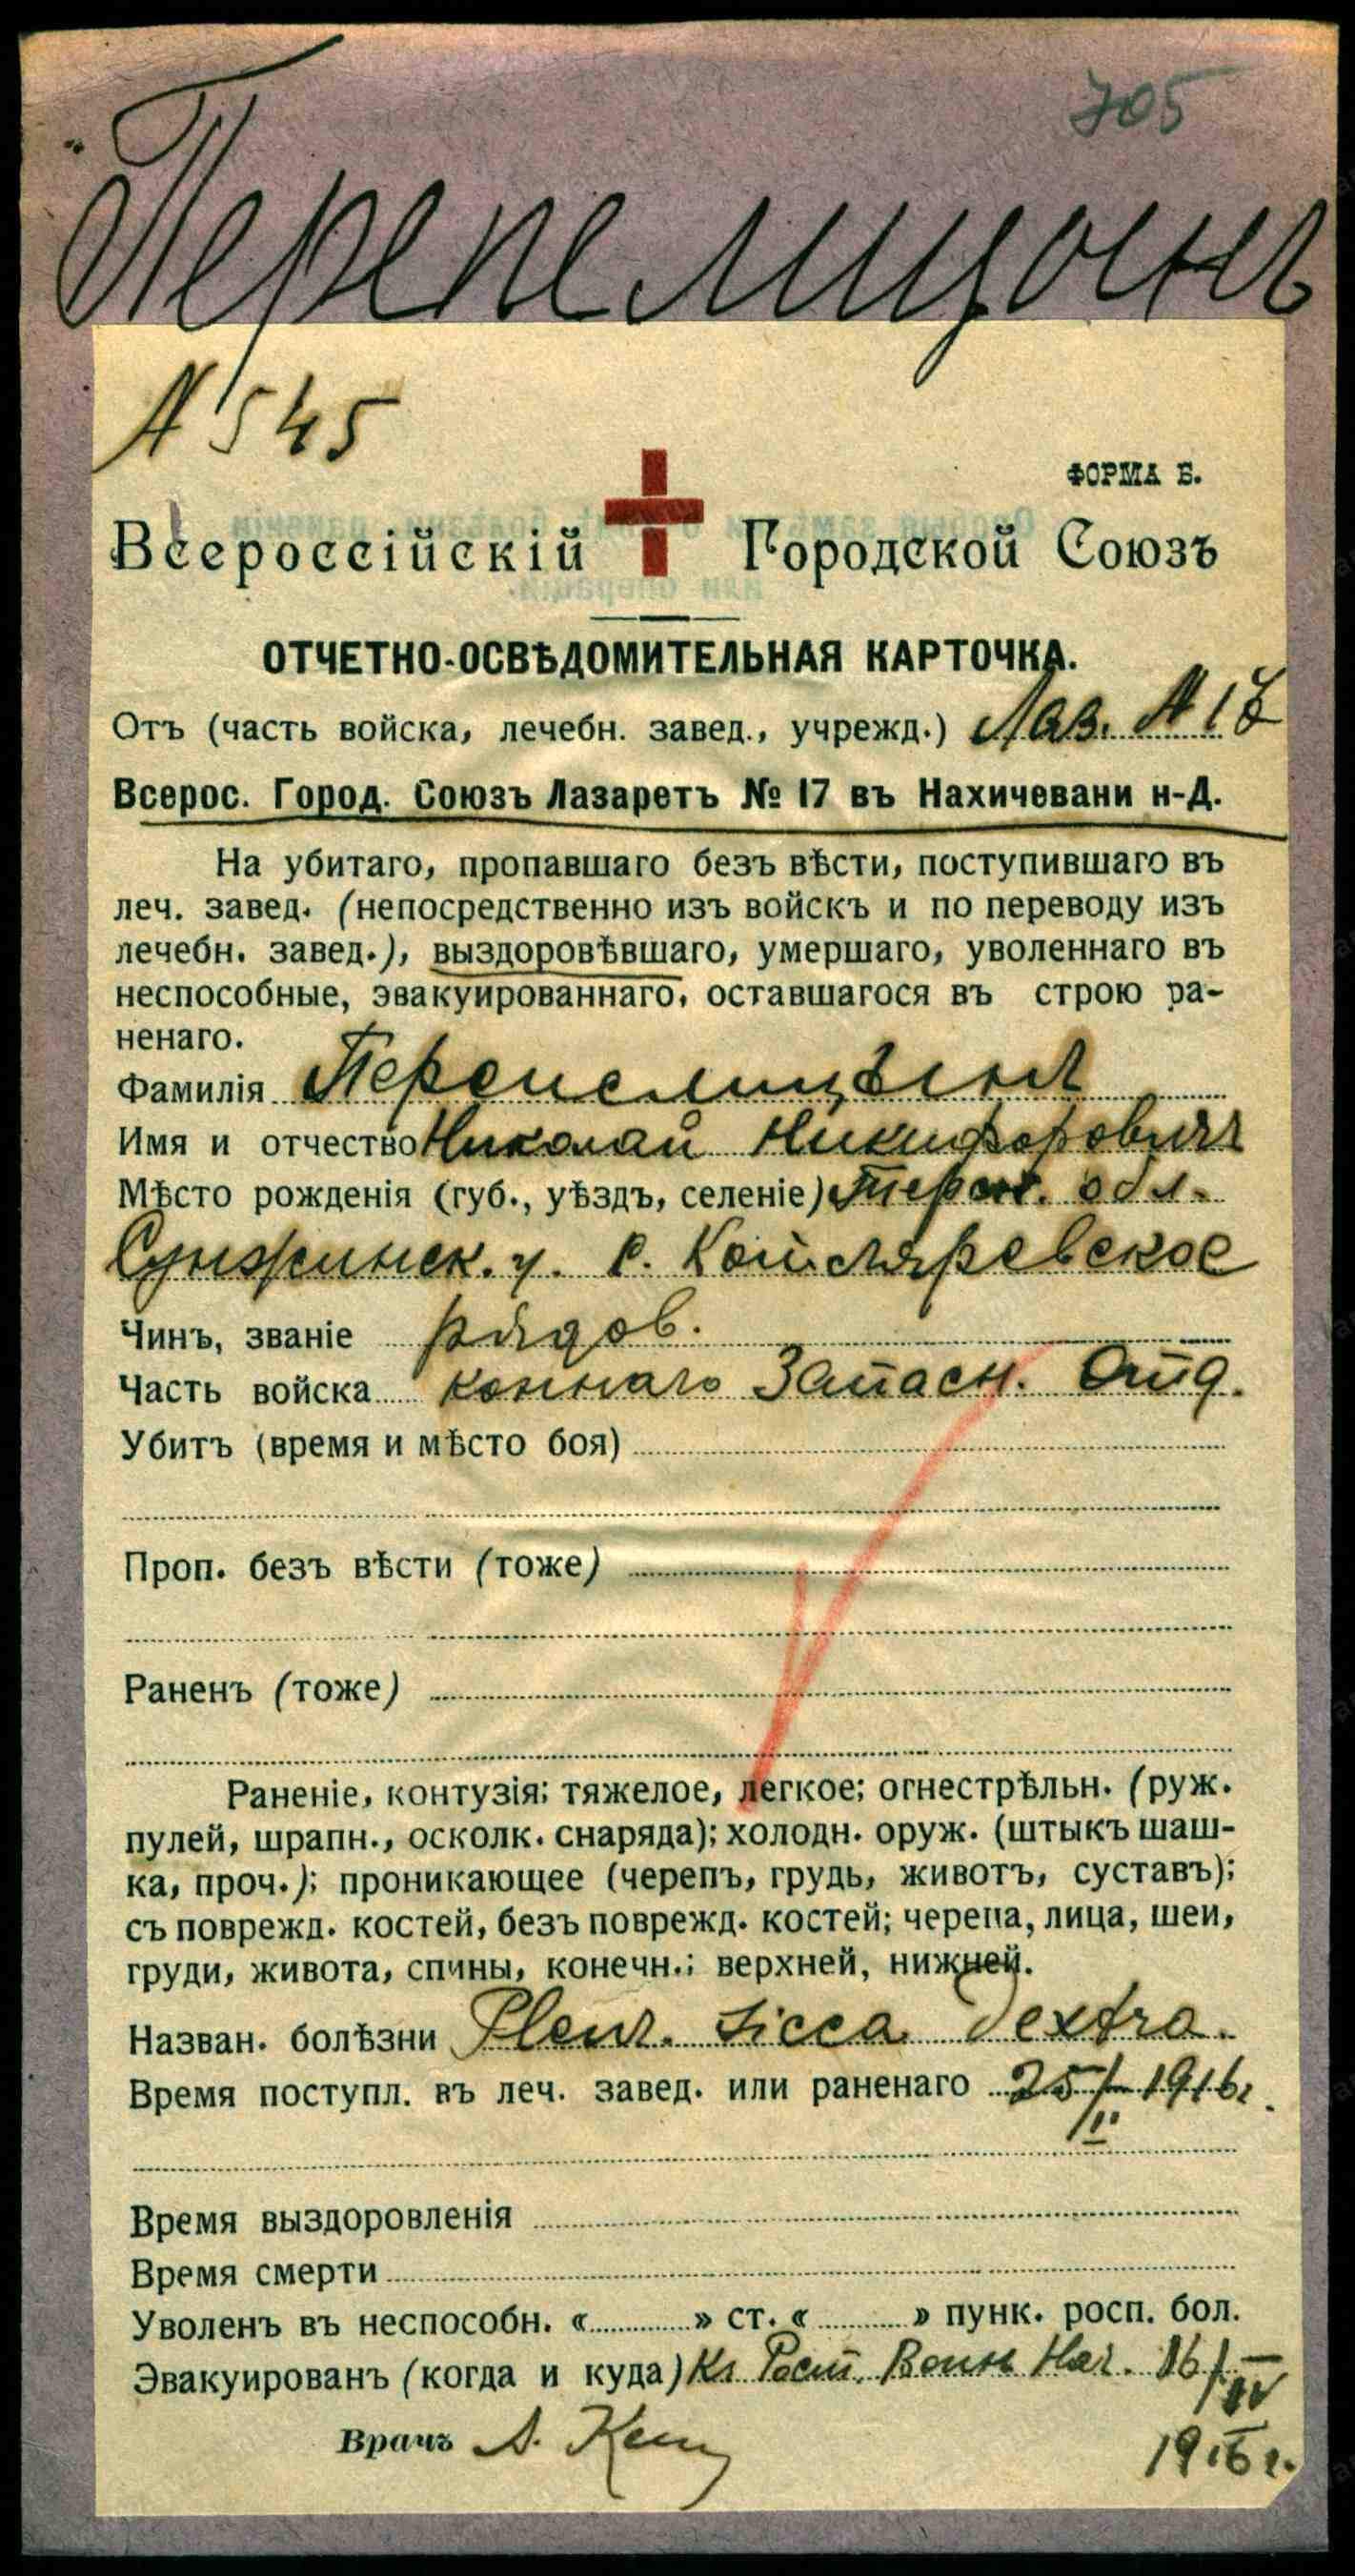 705
Перепелицынъ
№ 545
ФОРМА Б.
Всероссійскій Городской Союзъ
ОТЧЕТНО-ОСВѢДОМИТЕЛЬНАЯ КАРТОЧКА.
Отъ (часть войска, лечебн. завед., учрежд.) Лаз. № 17
Всерос. Город. Союзъ Лазаретъ № 17 въ Нахичевани н-Д.
На убитаго, пропавшаго безъ вѣсти, поступившаго въ
леч. завед. (непосредственно изъ войскъ и по переводу изъ
лечебн. завед.), выздоровѣвшаго, умершаго, уволеннаго въ
неспособные, эвакуированнаго, оставшагося въ строю ра-
ненаго.
Фамилія Перепелицынъ
Имя и отчество Николай Никифоровичъ
Мѣсто рожденія (губ., уѣздъ, селеніе) Терск. обл.
Сунженск. у. с. Котляревское
Чинъ, званіе рядов.
Часть войска коннаго Запасн. Отд.
Убитъ (время и мѣсто боя)
Проп. безъ вѣсти (тоже)
Раненъ (тоже)
Раненіе, контузія; тяжелое, легкое; огнестрѣльн. (руж.
пулей, шрапн., осколк. снаряда); холодн. оруж. (штыкъ шаш-
ка, проч.); проникающее (черепъ, грудь, животъ, суставъ);
съ поврежд. костей, безъ поврежд. костей; черепа, лица, шеи,
груди, живота, спины, конечн.; верхней, нижней.
Назван. болѣзни Pleur. sicca dextra.
Время поступл. въ леч. завед. или раненаго 25/II 1916г.
Время выздоровленія
Время смерти
Уволенъ въ неспособн. « » ст. « » пунк. росп. бол.
Эвакуированъ (когда и куда) Кг Рост. Воин Нач. 16/IV
1916 г.
Врачъ А.